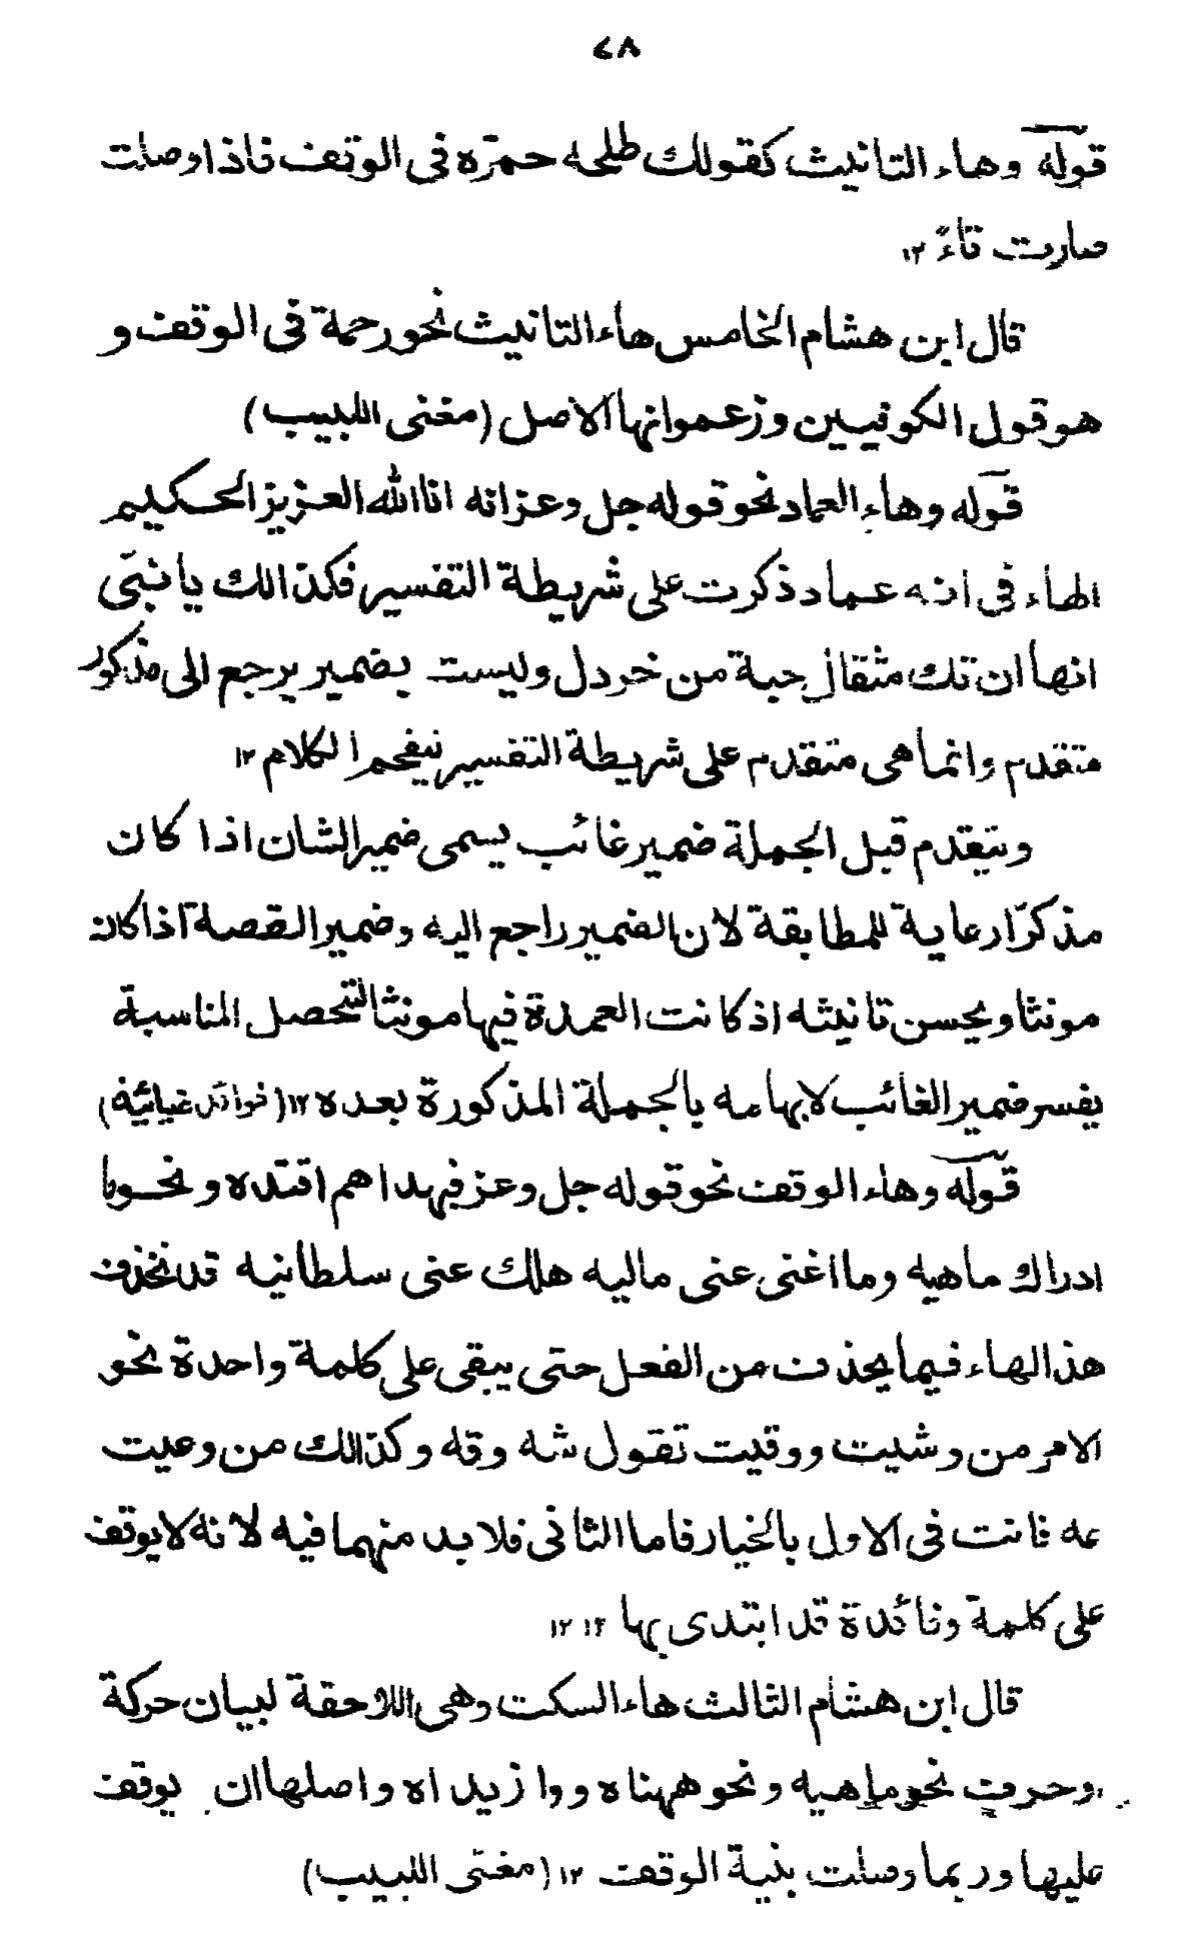 ٤٨
قوله وهاء التانيث كقولك طلحه حمزه فى الوقف فاذا وصلت
صارت تاءً ١٢
قال ابن هشام الخامس هاء التانيث نحو رحمة فى الوقف و
هو قول الكوفيين وزعموا انها الاصل (مغنى اللبيب)
قوله وهاء العماد نحو قوله جل وعز انه انا الله العزيز الحكيم
الهاء فى انه عماد ذكرت على شريطة التفسير فكذالك يا نبىّ
انها ان تك مثقال حبة من خردل وليست بضمير يرجع الى مذكور
متقدم وانما هى متقدم على شريطة التفسير نيفحم الكلام ١٢
ويتقدم قبل الجملة ضمير غائب يسمى ضمير الشان اذا كان
مذكرّا رعاية للمطابقة لان الضمير راجع اليه وضمير القصة اذا كان
مونثا ويحسن تانيثه اذ كانت العمدة فيها مونثا لتحصل المناسبة
يفسر ضمير الغائب لابهامه بالجملة المذكورة بعده ١٢ (فوائد غياثية)
قوله وهاء الوقف نحو قوله جل وعز فبهداهم اقتده ونحو ما
ادراك ماهيه وما اغنى عنى ماليه هلك عنى سلطانيه قد تحذف
هذ الهاء فيما يحذف من الفعل حتى يبقى على كلمة واحدة نحو
الامر من وشيت ووقيت تقول شه وقه وكذالك من وعيت
عه فانت فى الاول بالخيار فاما الثانى فلا بد منهما فيه لانه لا يوقف
على كلمة وفائدة قد ابتدى بها ١٢ ١٢
قال ابن هشام الثالث هاء السكت وهى اللاحقة لبيان حركة
وحرف نحو ماهيه ونحو ههناه ووا زيداه واصلها ان يوقف
عليها وربما وصلت بنية الوقف ١٢ (مغنى اللبيب)